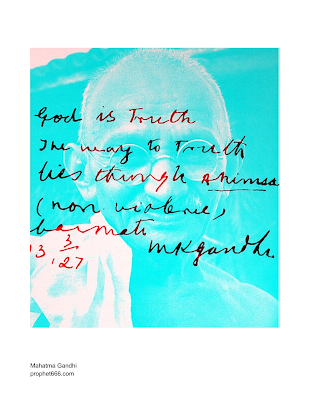 God is Truth
The way to Truth
lies through ahimsa
(non violence)
Sabarmati
13 3 '27 MKGandhi
Mahatma Gandhi
prophet666.com